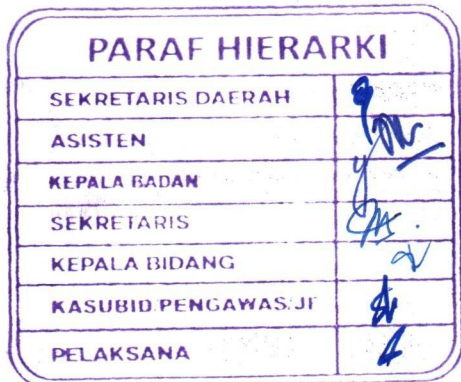 PARAF HIERARKI
SEKRETARIS DAERAH
ASISTEN
KEPALA BADAN
SEKRETARIS
KEPALA BIDANG
KASUBID/PENGAWAS/JF
PELAKSANA